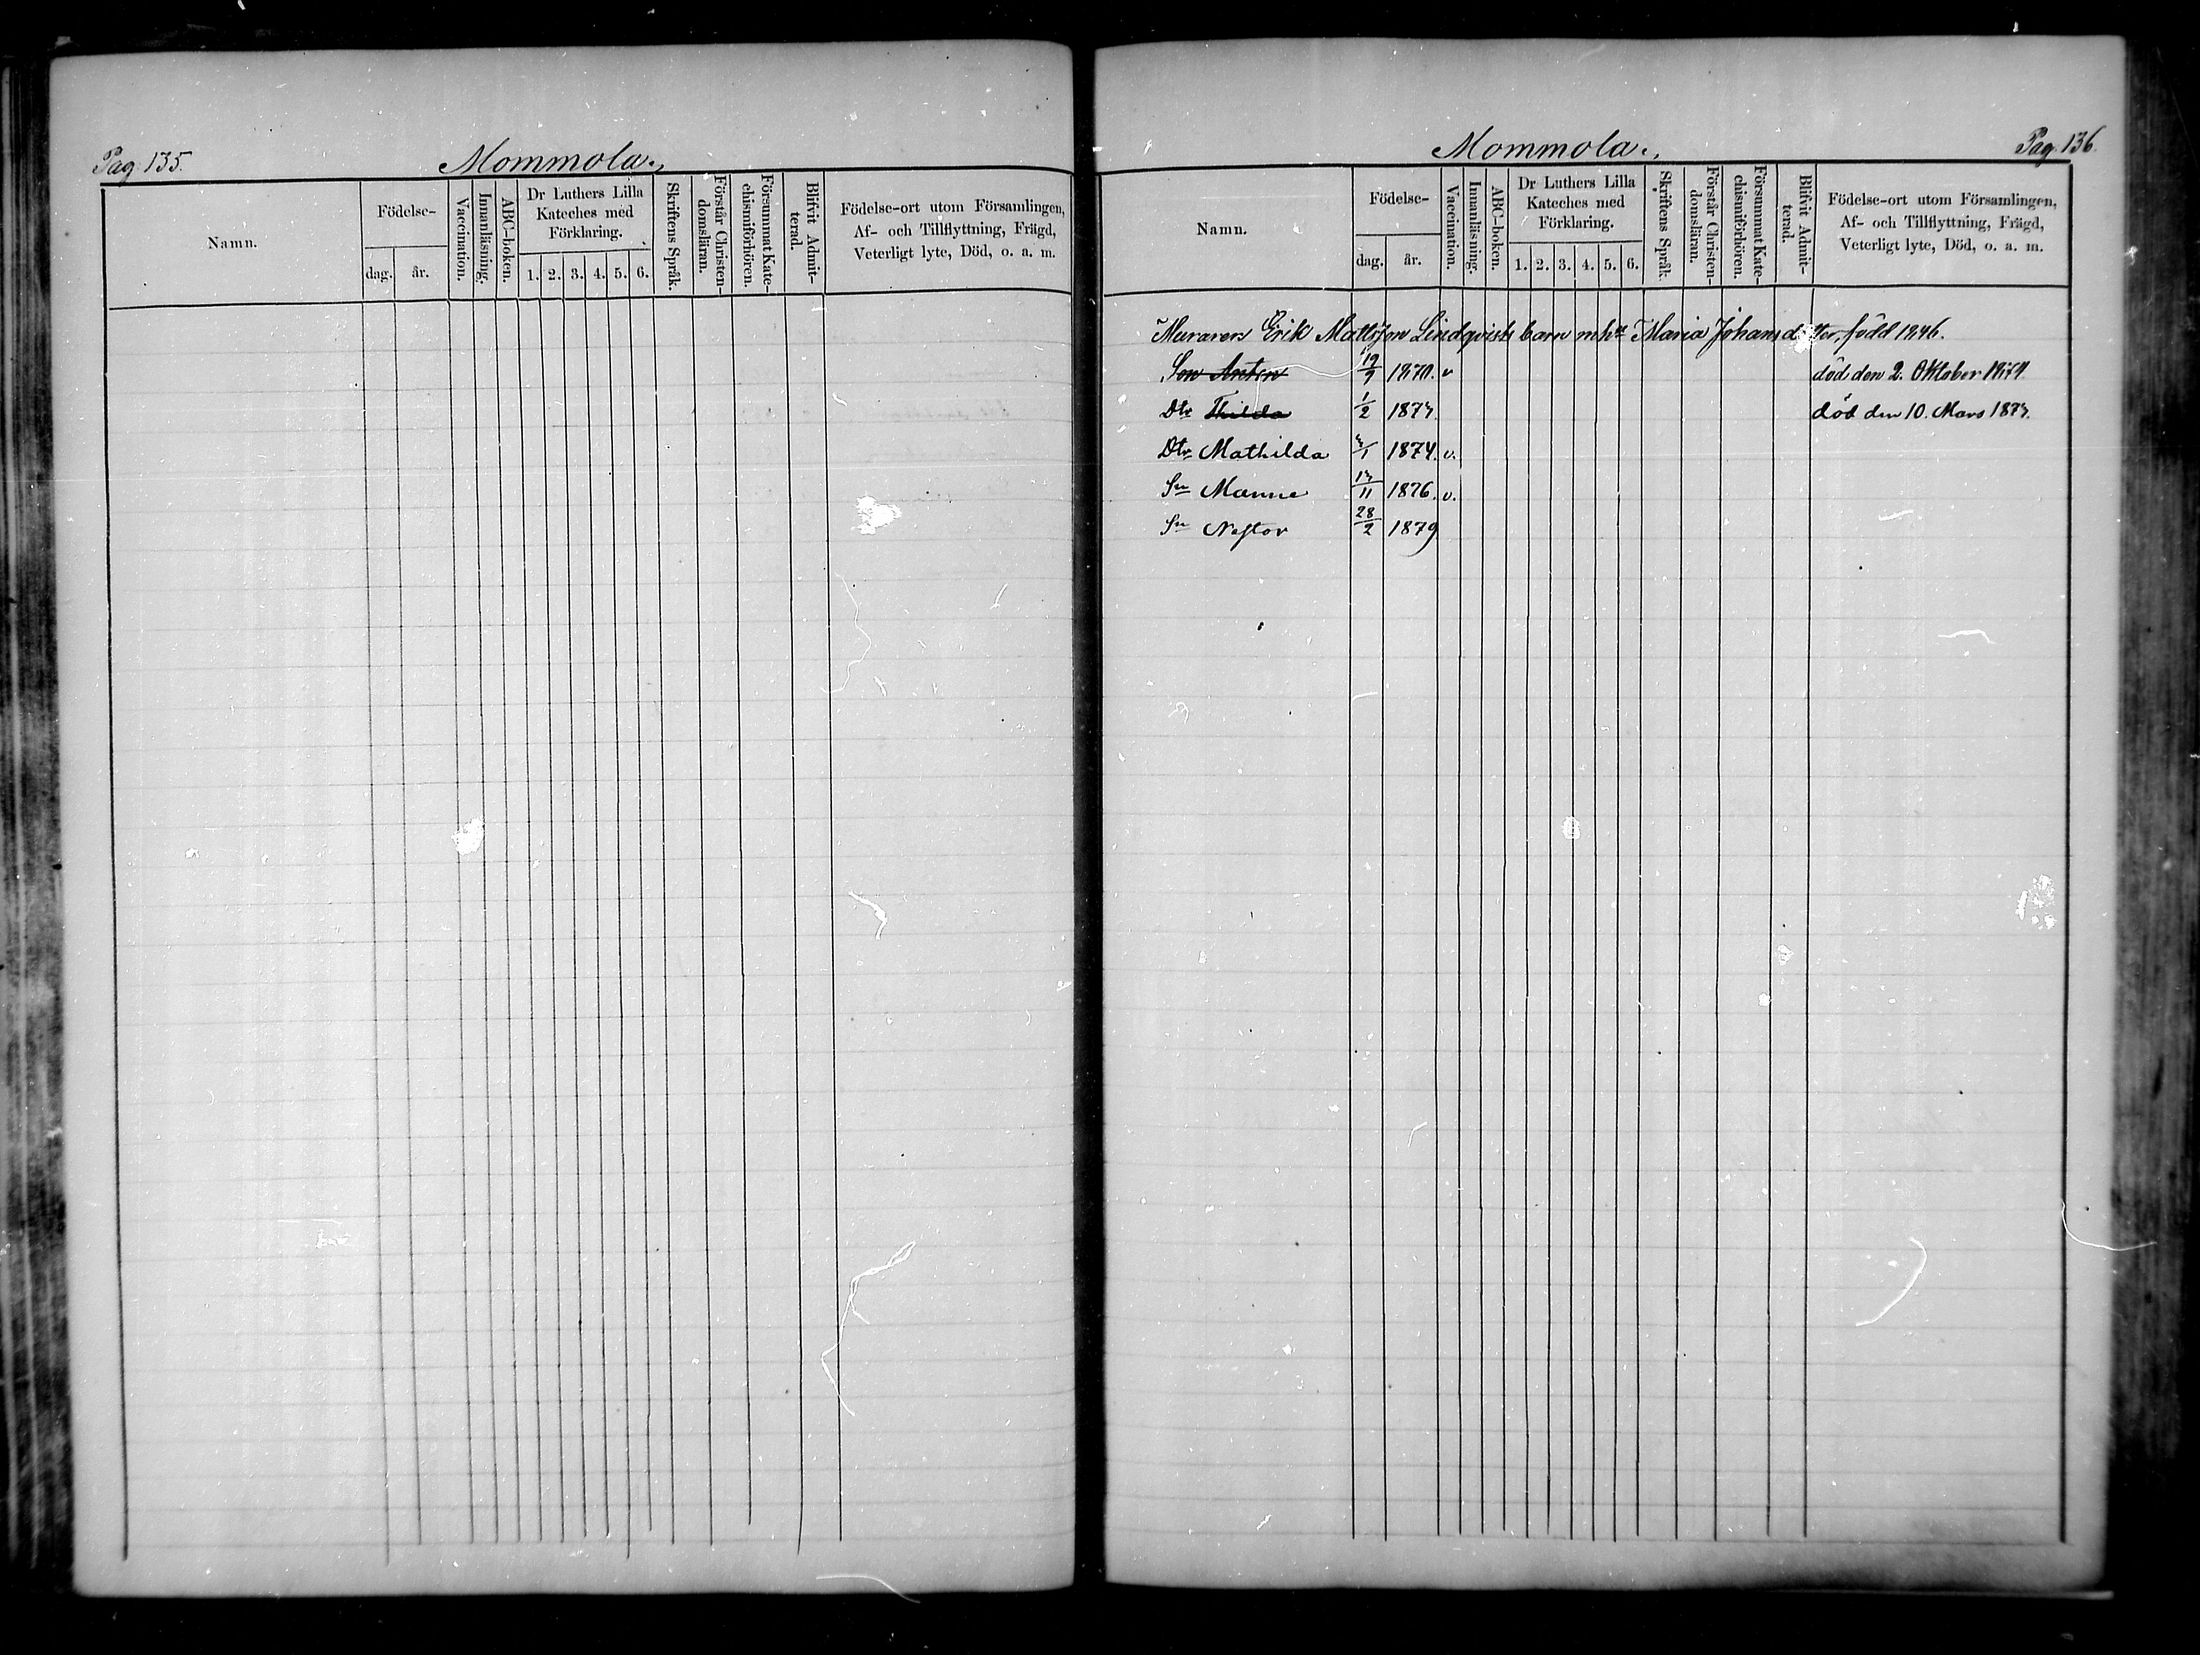 Pag. 135.
Mommola.
Namn.
Födelse-
dag.
år.
Vaccination.
Innanläsning.
ABC-boken.
Dr Luthers Lilla
Kateches med
Förklaring.
1. 2. 3. 4. 5. 6.
Skriftens Språk.
Förstår Christen-
domsläran.
Försummat Kate-
chismiförhören.
Blifvit Admit-
terad.
Födelse-ort utom Församlingen,
Af- och Tillflyttning, Frägd,
Veterligt lyte, Död, o. a. m.
Mommola.
Pag. 136.
Namn.
Födelse-
dag.
år.
Vaccination.
Innanläsning.
ABC-boken.
Dr Luthers Lilla
Kateches med
Förklaring.
1. 2. 3. 4. 5. 6.
Skriftens Språk.
Förstår Christen-
domsläran.
Försummat Kate-
chismiförhören.
Blifvit Admit-
terad.
Födelse-ort utom Församlingen,
Af- och Tillflyttning, Frägd,
Veterligt lyte, Död, o. a. m.
Murarers Erik Matlsson Lindqvists barn m. h. Maria Johansdotter, född 1846.
Son Anton 19/9 1870. v död den 2. Oktober
Dtr Thilda 1/2 1873. död den 10. Mars 1873.
Dtr Mathilda 3/1 1874. v.
Sn Manne 13/11 1876. v.
Sn Nestor 28/2 1879